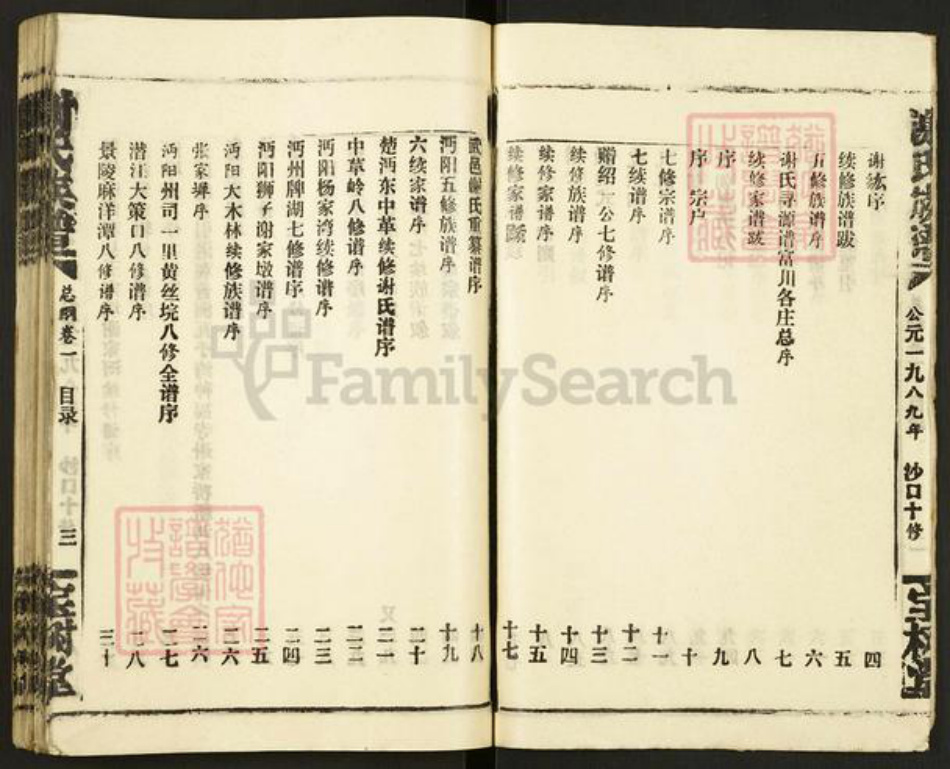 谢氏族谱
公元一九八九年 沙口十修
宝树堂
谢紘序 四
续修族谱跋 五
五修族谱序 六
谢氏寻源谱富川各庄总序 七
续修家谱跋 八
序 九
序 宗户 十
七修宗谱序 十一
七续谱序 十二
赠绍一公七修谱序 十三
续修族谱序 十四
续修家谱序 十五
续修家谱跋 十七
武邑谢氏重纂谱序 十八
沔阳五修族谱序 十九
六续家谱序 二十
楚沔东中革续修谢氏谱序 二一
中草岭八修谱序 二二
沔阳杨家湾续修谱序 二三
沔州牌湖七修谱序 二四
沔阳狮子谢家墩谱序 二五
沔阳大木林续修族谱序 二六
张家墠序 二六
沔阳州司一里黄丝垸八修全谱序 二七
潜江大策口八修谱序 二八
景陵麻洋潭八修谱序 三十
总纲卷一 目录 三
宝树堂
FamilySearch